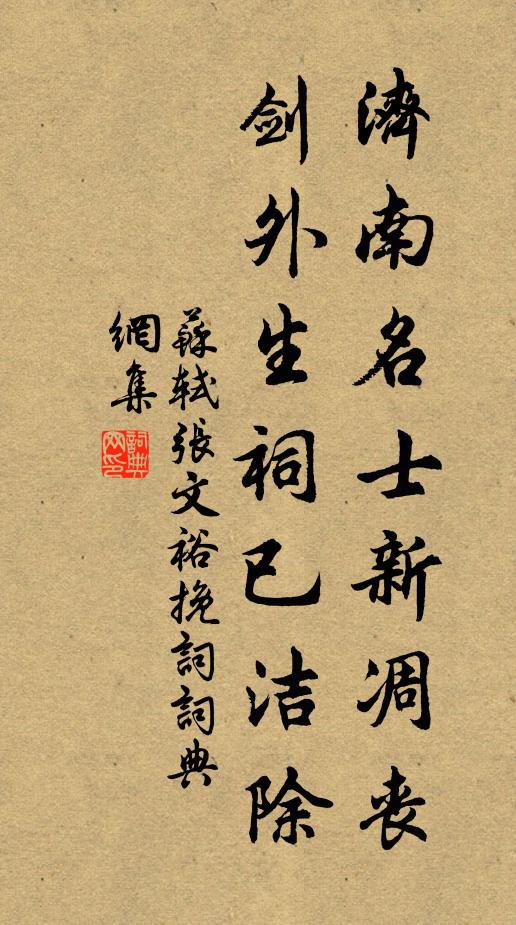 濟南名士新凋喪
劍外生祠已洁除
蘇軾張文裕挽詞詞典
網集
詞典网印